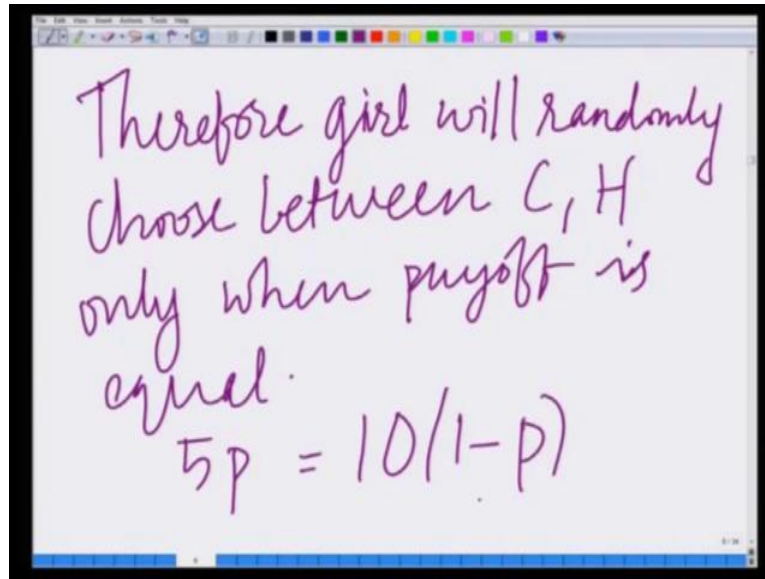 File Edit View Insert Actions Tools Help
Therefore girl will randomly
choose between C, H
only when payoff is
equal.
5p = 10(1-p)